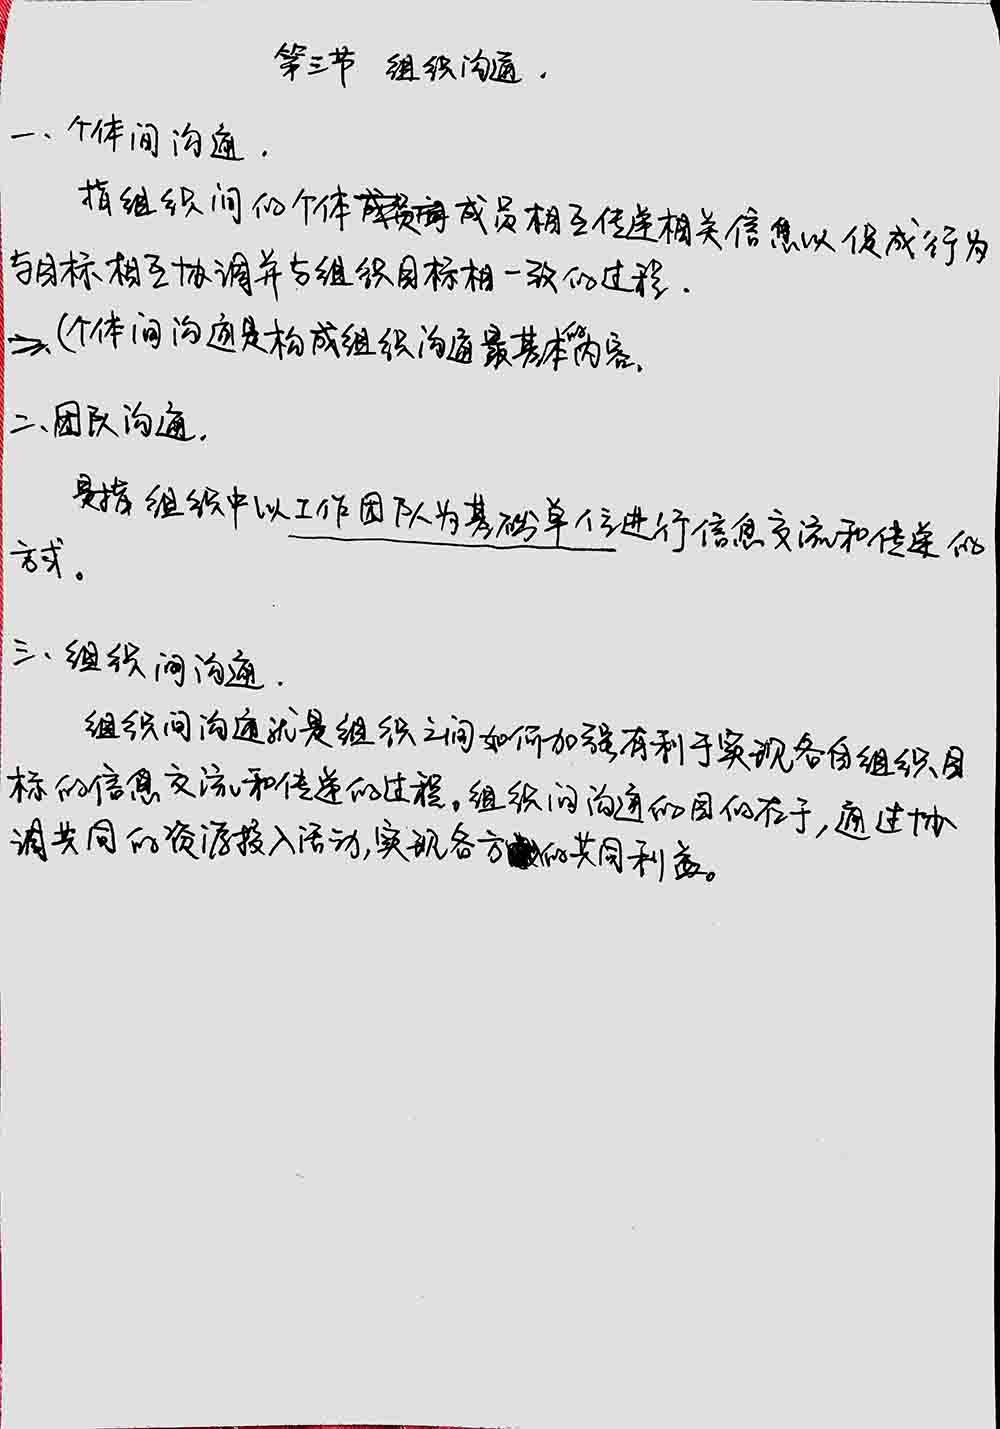 第三节 组织沟通.
一、个体间沟通.
指组织间的个体成员相互传递相关信息以促成行为
与目标相互协调并与组织目标相一致的过程.
(个体间沟通是构成组织沟通最基本的内容.
二、团队沟通.
是指组织中以工作团队为基础单位进行信息交流和传递的
方式。
三、组织间沟通.
组织间沟通就是组织之间如何加强有利于实现各自组织目
标的信息交流和传递的过程。组织间沟通的目的在于,通过协
调共同的资源投入活动,实现各方的共同利益。